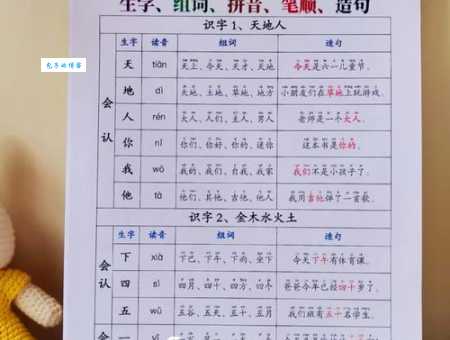 生字、组词、拼音、笔顺、造句
识字1、天地人
生字 读音 组词 造句
会认
天 tiān 天上、今天、天才、天地 今天是六一儿童节。
地 dì 天地、土地、草地、地方 小朋友们在草地上玩游戏。
人 rén 大人、人们、主人、男人 老师是一个大人。
你 nǐ 你们、你好、你的、迷你 这本书是你的。
我 wǒ 我的、我们、自我、我家 我们不是小孩子了。
他 tā 他们、其他、吉他、他人 我用吉他伴了一首歌。
识字2、金木水火土
生字 读音 组词 造句
会认
下 xià 下巴、下午、下雨、坐下 今天下午有体育课。
四 sì 四月、四十、四方、四个 爸爸今年已经四十岁了。
五 wǔ 五谷、五天、五十、五月 我们班有五十名学生。
兔子的博客